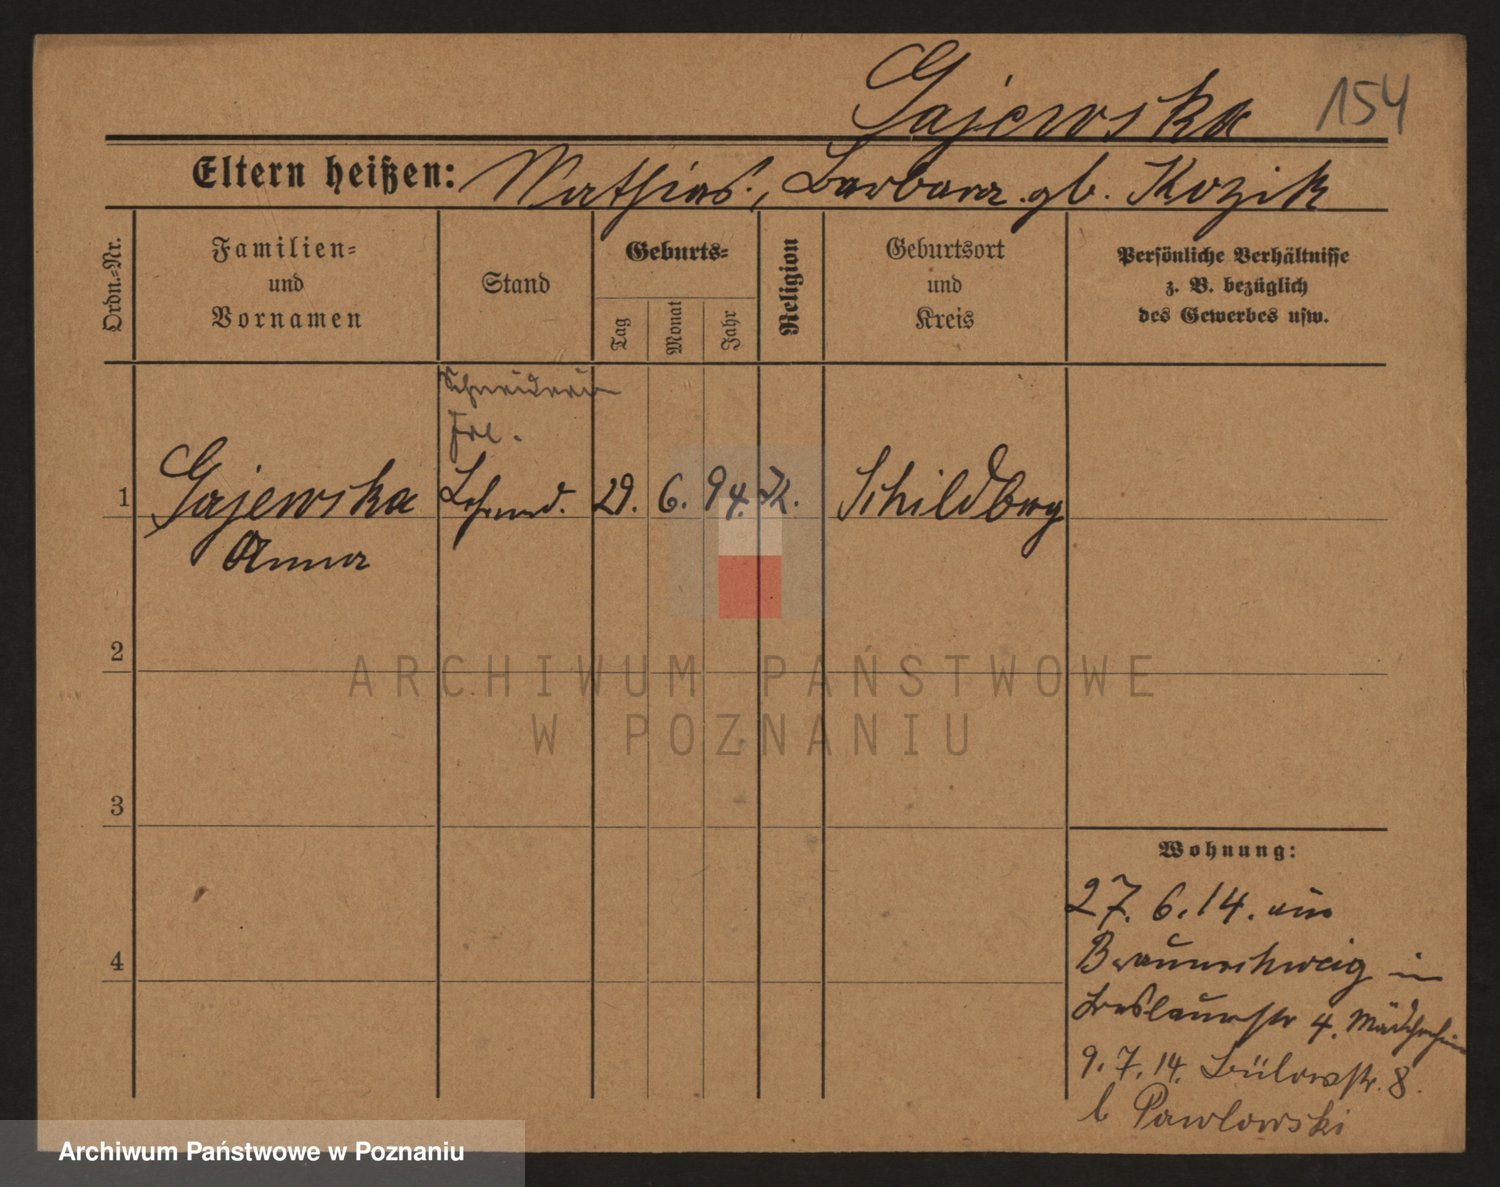 Gajewska 154
Eltern heißen: Mathias, Barbara gb. Kozik
Ordn.-Nr.
Familien-
und
Vornamen
Stand
Geburts-
Tag
Monat
Jahr
Religion
Geburtsort
und
Kreis
Persönliche Verhältnisse
z. B. bezüglich
des Gewerbes usw.
Schneiderin
Frl.
1 Gajewska 29. 6. 94. K. Schildberg
Anna
2
ARCHIWUM PAŃSTWOWE
W POZNANIU
3
Wohnung:
27. 6. 14. aus
Braunschweig in
4
Breslauerstr 4. Mädchenheim
9. 7. 14. Bülowstr. 8.
b Pawlowski
Archiwum Państwowe w Poznaniu